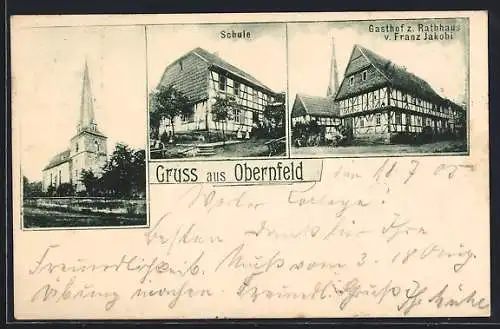 Schule
Gasthof z. Rathhaus
v. Franz Jakobi
Gruss aus Obernfeld
den 18 7 05
Werter College!
Besten Dank für Ihre
Freundlichkeit. Muß vom 2. 18 Aug.
Übung machen. Freundl. Gruß